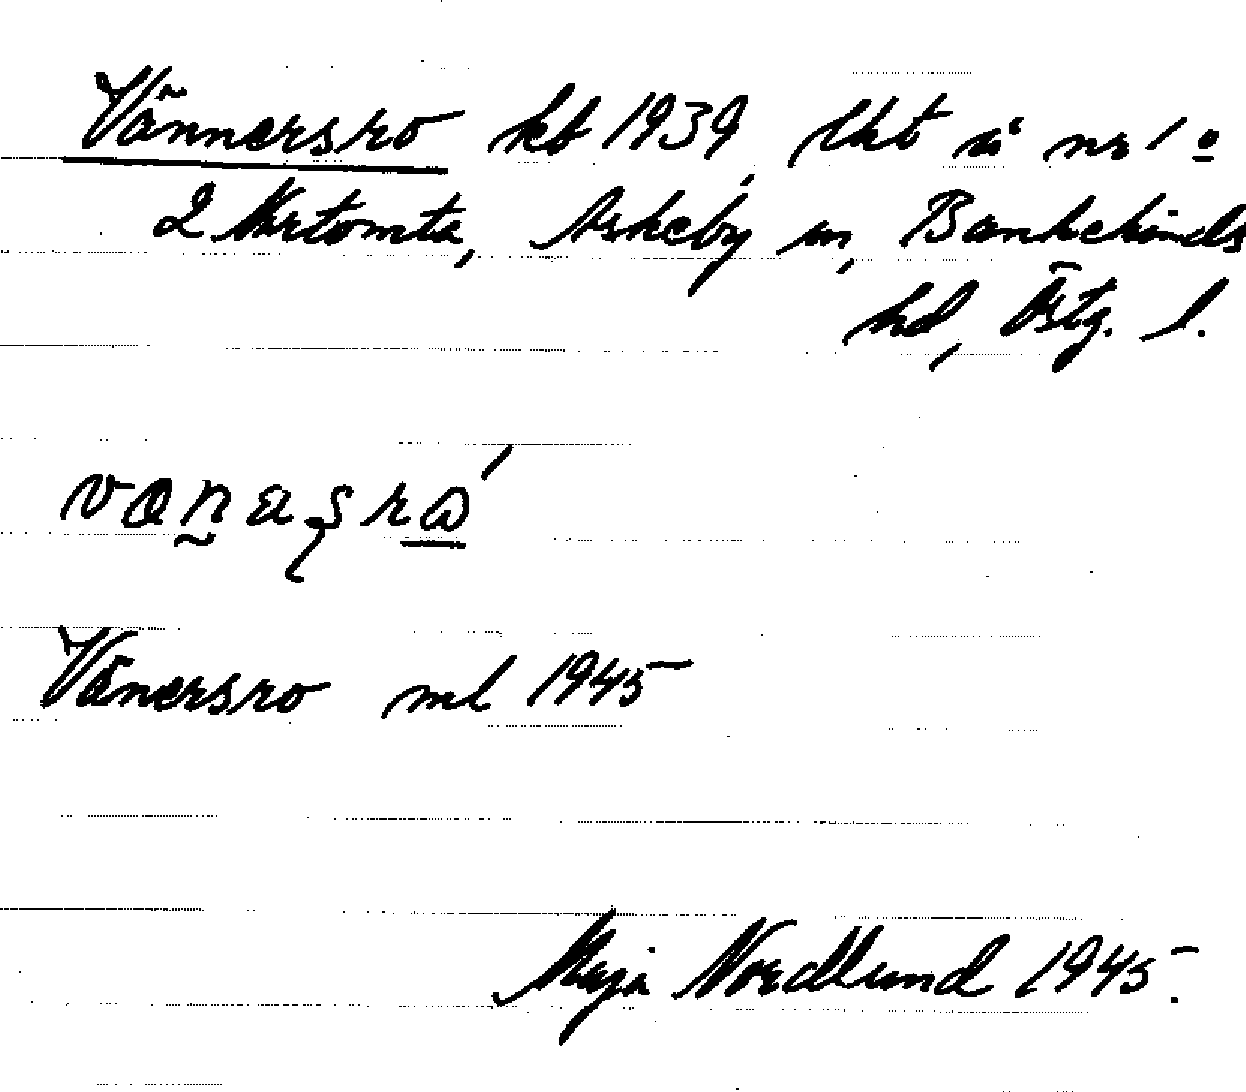 Vännersro kb 1939, lht å nr 1 o
2 Årtomta, Askeby sn, Bankekinds
hd, Östg. l.
Vänersro ml 1945
Maja Nordlund 1945.